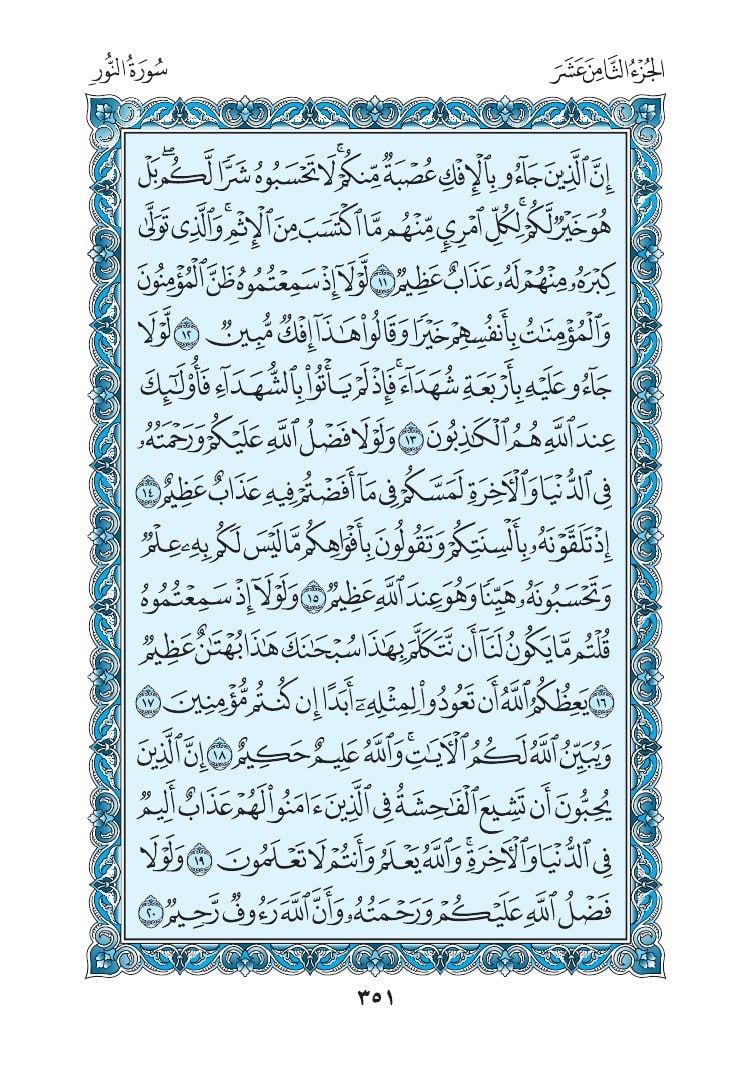 الجُزْءُ الثَّامِنَ عَشَرَ
سُورَةُ النُّورِ
إِنَّ ٱلَّذِينَ جَآءُو بِٱلۡإِفۡكِ عُصۡبَةٌ مِّنكُمۡۚ لَا تَحۡسَبُوهُ شَرّٗا لَّكُمۖ بَلۡ
هُوَ خَيۡرٌ لَّكُمۡۚ لِكُلِّ ٱمۡرِيٕٖ مِّنۡهُم مَّا ٱكۡتَسَبَ مِنَ ٱلۡإِثۡمِۚ وَٱلَّذِي تَوَلَّىٰ
كِبۡرَهُۥ مِنۡهُمۡ لَهُۥ عَذَابٌ عَظِيمٞ ١١ لَّوۡلَآ إِذۡ سَمِعۡتُمُوهُ ظَنَّ ٱلۡمُؤۡمِنُونَ
وَٱلۡمُؤۡمِنَٰتُ بِأَنفُسِهِمۡ خَيۡرٗا وَقَالُواْ هَٰذَآ إِفۡكٞ مُّبِينٞ ١٢ لَّوۡلَا
جَآءُو عَلَيۡهِ بِأَرۡبَعَةِ شُهَدَآءَۚ فَإِذۡ لَمۡ يَأۡتُواْ بِٱلشُّهَدَآءِ فَأُوْلَٰٓئِكَ
عِندَ ٱللَّهِ هُمُ ٱلۡكَٰذِبُونَ ١٣ وَلَوۡلَا فَضۡلُ ٱللَّهِ عَلَيۡكُمۡ وَرَحۡمَتُهُۥ
فِي ٱلدُّنۡيَا وَٱلۡأٓخِرَةِ لَمَسَّكُمۡ فِي مَآ أَفَضۡتُمۡ فِيهِ عَذَابٌ عَظِيمٌ ١٤
إِذۡ تَلَقَّوۡنَهُۥ بِأَلۡسِنَتِكُمۡ وَتَقُولُونَ بِأَفۡوَاهِكُم مَّا لَيۡسَ لَكُم بِهِۦ عِلۡمٞ
وَتَحۡسَبُونَهُۥ هَيِّنٗا وَهُوَ عِندَ ٱللَّهِ عَظِيمٞ ١٥ وَلَوۡلَآ إِذۡ سَمِعۡتُمُوهُ
قُلۡتُم مَّا يَكُونُ لَنَآ أَن نَّتَكَلَّمَ بِهَٰذَا سُبۡحَٰنَكَ هَٰذَا بُهۡتَٰنٌ عَظِيمٞ
١٦ يَعِظُكُمُ ٱللَّهُ أَن تَعُودُواْ لِمِثۡلِهِۦٓ أَبَدًا إِن كُنتُم مُّؤۡمِنِينَ ١٧
وَيُبَيِّنُ ٱللَّهُ لَكُمُ ٱلۡأٓيَٰتِۚ وَٱللَّهُ عَلِيمٌ حَكِيمٌ ١٨ إِنَّ ٱلَّذِينَ
يُحِبُّونَ أَن تَشِيعَ ٱلۡفَٰحِشَةُ فِي ٱلَّذِينَ ءَامَنُواْ لَهُمۡ عَذَابٌ أَلِيمٞ
فِي ٱلدُّنۡيَا وَٱلۡأٓخِرَةِۚ وَٱللَّهُ يَعۡلَمُ وَأَنتُمۡ لَا تَعۡلَمُونَ ١٩ وَلَوۡلَا
فَضۡلُ ٱللَّهِ عَلَيۡكُمۡ وَرَحۡمَتُهُۥ وَأَنَّ ٱللَّهَ رَءُوفٞ رَّحِيمٞ ٢٠
٣٥١